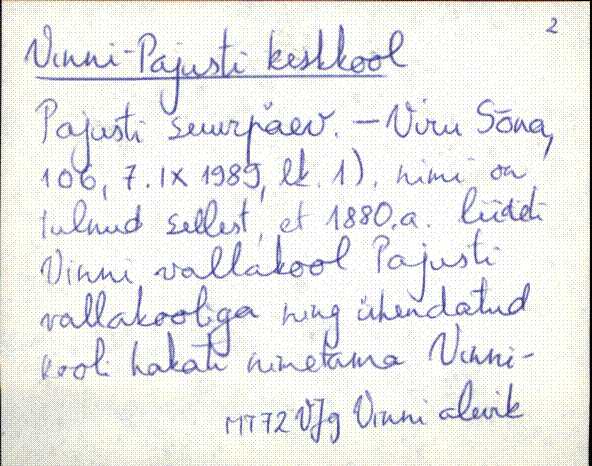 2
Vinni-Pajusti keskkool
Pajusti suurpäev. – Viru Sõna,
106, 7. IX 1989, lk. 1). nimi on
tulnud sellest, et 1880.a. liideti
Vinni vallakool Pajusti
vallakooliga ning ühendatud
kooli hakati nimetama Vinni-
MT72 VJg Vinni alevik